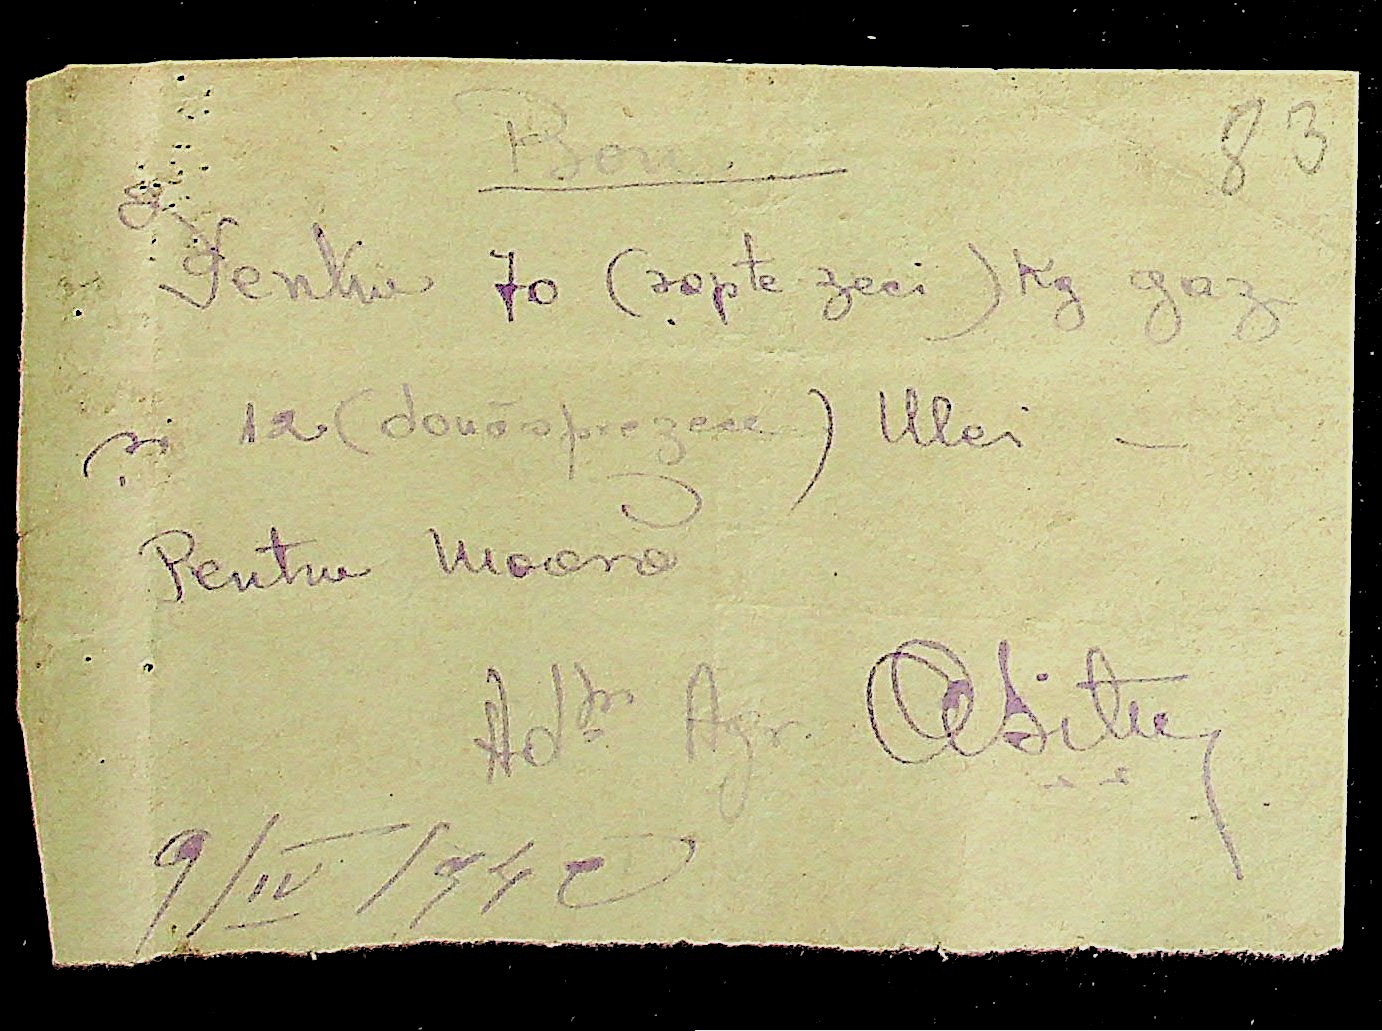 83
Bon.
Pentru 70 (șapte zeci) Kg gaz
și 12 (douăsprezece) Ulei —
Pentru Moară
Agr.
9/IV/942